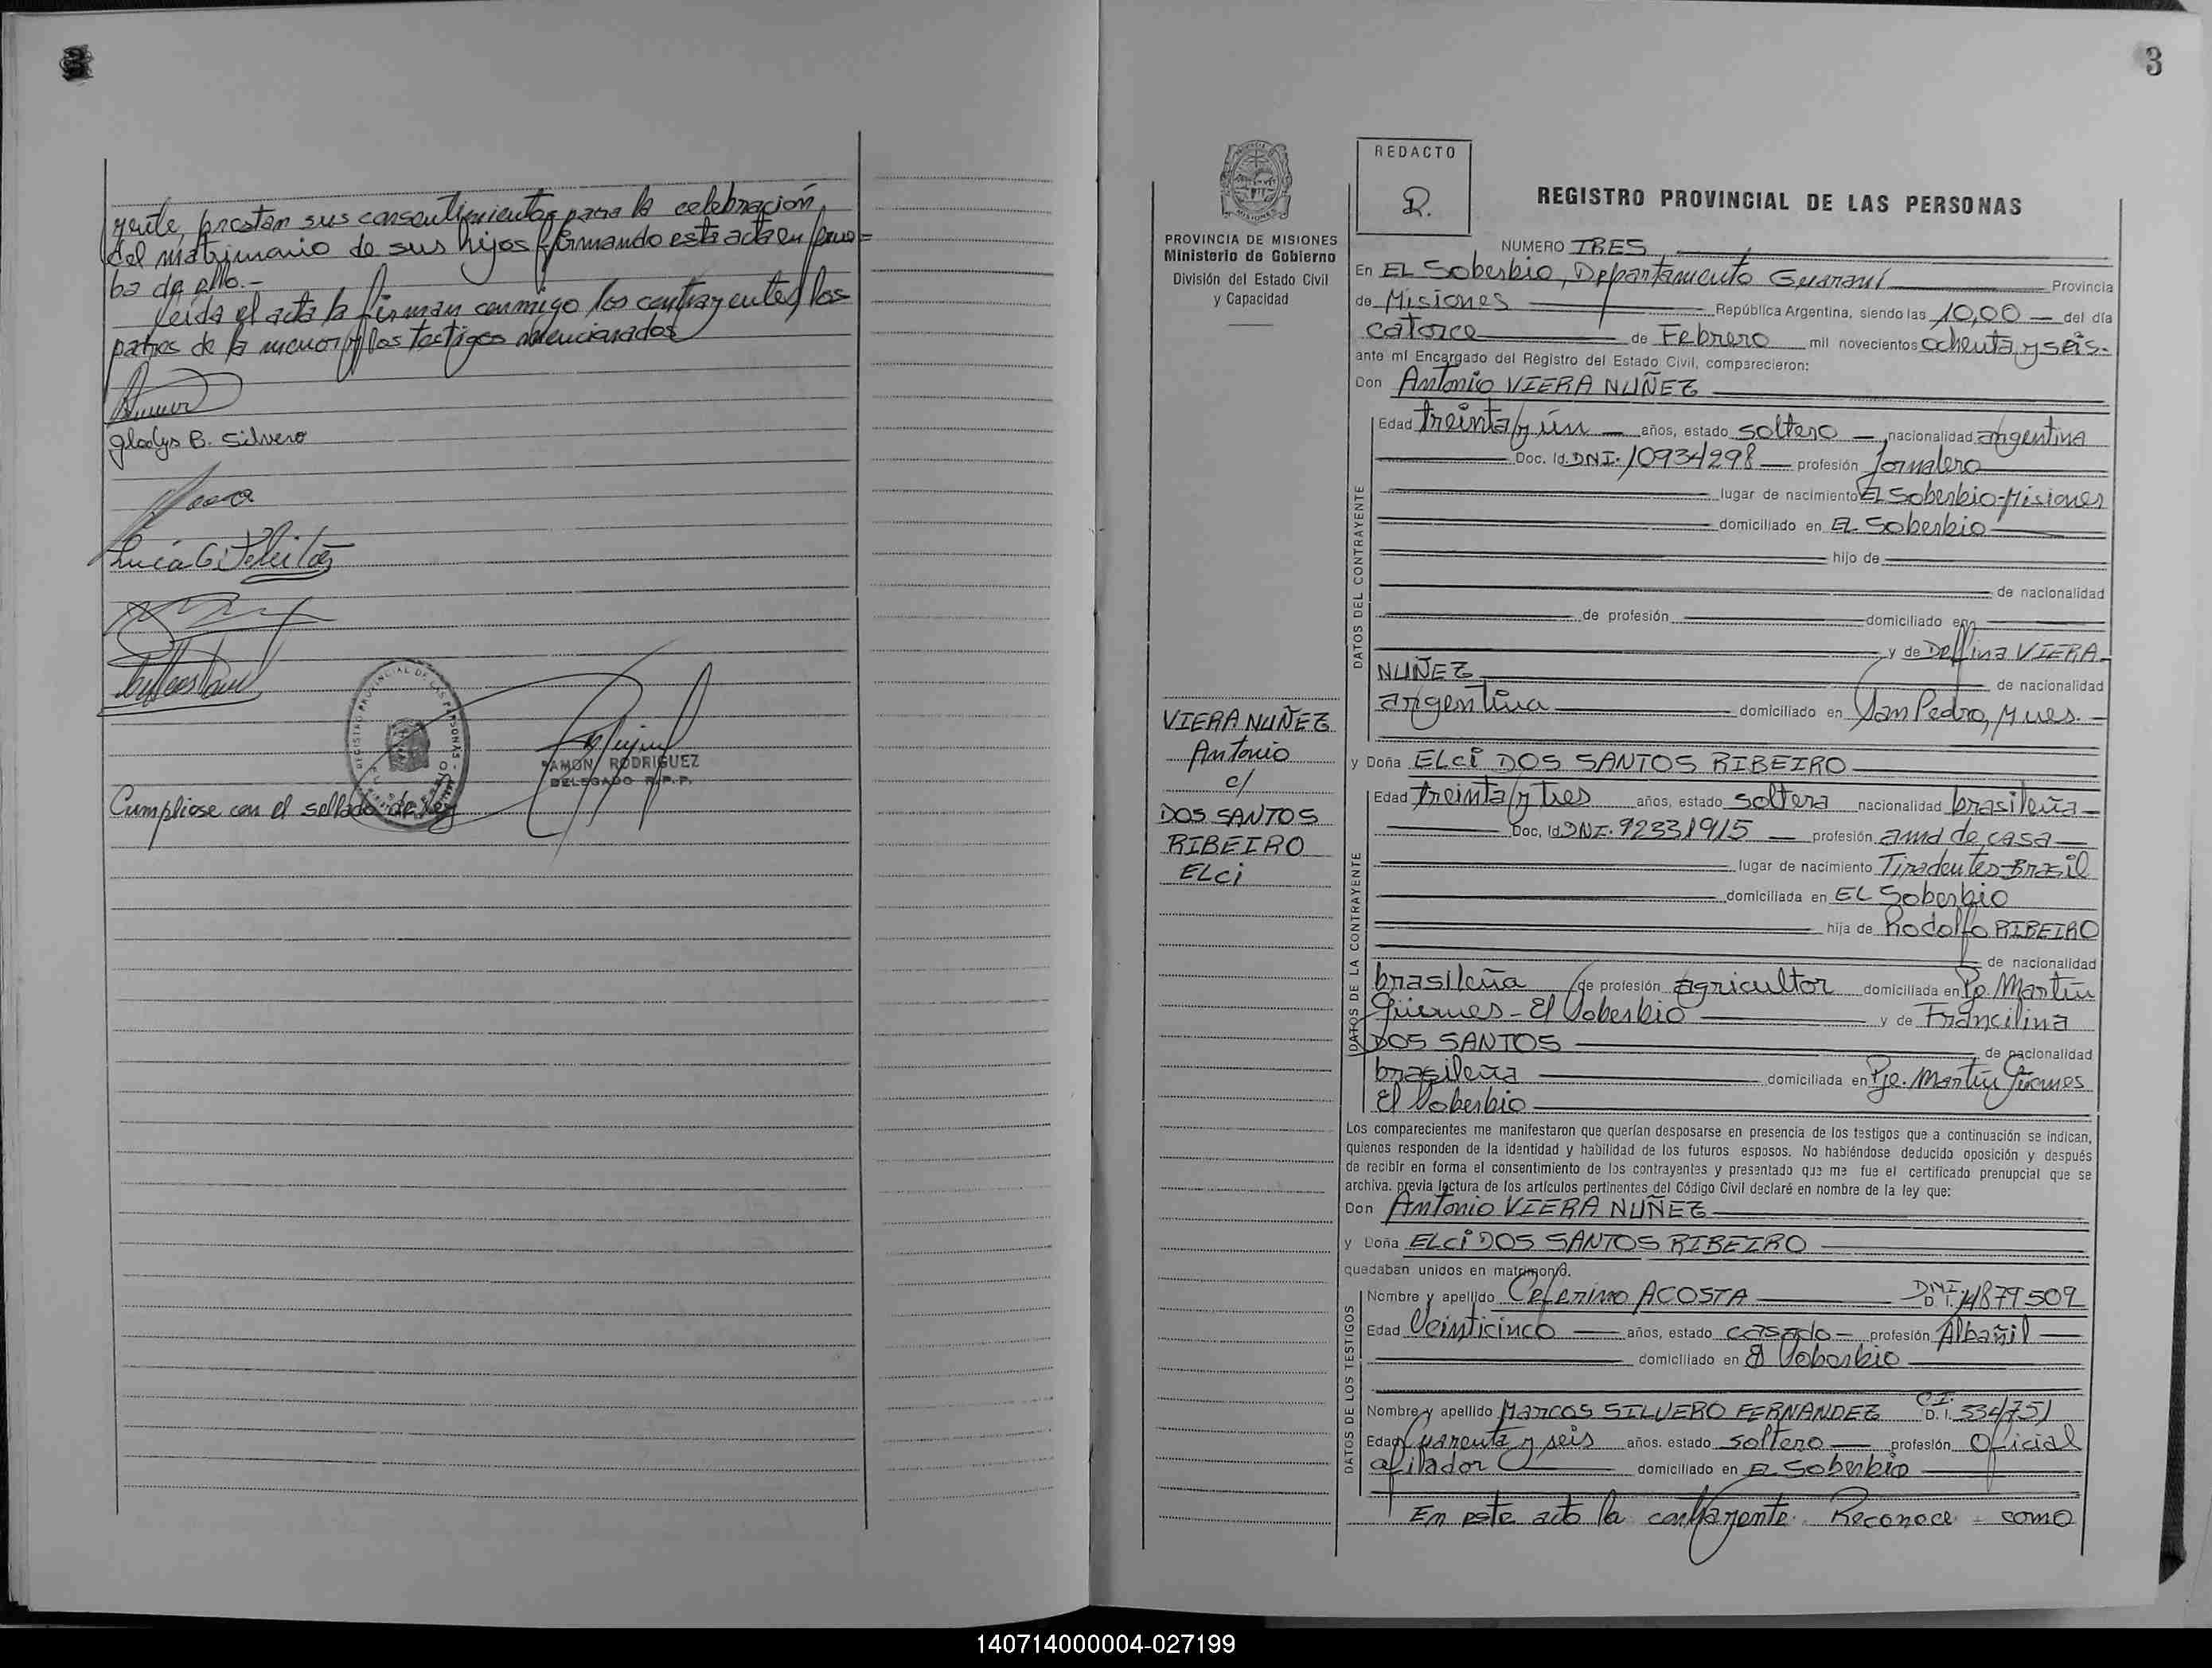 yente, prestan sus consentimientos para la celebración
del matrimonio de sus hijos firmando esta acta en prue=
ba de ello.-
Leída el acta la firman conmigo los contrayentes, los
padres de la menor y los testigos mencionados
Gladys B. Silvero
Lucía G.
REGISTRO PROVINCIAL DE LAS PERSONAS
RAMON RODRIGUEZ
DELEGADO R.P.P.
Cumpliose con el sellado de ley
3
PROVINCIA DE MISIONES
Ministerio de Gobierno
División del Estado Civil
y Capacidad
VIERA NUÑEZ
Antonio
c/
DOS SANTOS
RIBEIRO
ELci
REDACTO
R.
REGISTRO PROVINCIAL DE LAS PERSONAS
NUMERO TRES
En EL Soberbio, Departamento Guaraní Provincia
de Misiones República Argentina, siendo las 10,00 del día
catorce de Febrero mil novecientos ochenta y seis.-
ante mí Encargado del Registro del Estado Civil, comparecieron:
Don Antonio VIERA NUÑEZ
DATOS DEL CONTRAYENTE
Edad treinta y ún años, estado soltero nacionalidad argentina
Doc. Id. DNI. 10934298 profesión Jornalero
lugar de nacimiento EL Soberbio-Misiones
domiciliado en EL Soberbio
hijo de
de nacionalidad
de profesión domiciliado en
y de Delfina VIERA
NUÑEZ de nacionalidad
argentina domiciliado en San Pedro, Mnes.
y Doña ELci DOS SANTOS RIBEIRO
DATOS DE LA CONTRAYENTE
Edad treinta y tres años, estado soltera nacionalidad brasileña
Doc. Id DNI. 92331915 profesión ama de casa
lugar de nacimiento Tiradentes-Brasil
domiciliada en EL Soberbio
hija de Rodolfo RIBEIRO
de nacionalidad
brasileña de profesión agricultor domiciliada en Pje Martín
Güemes - El Soberbio y de Francilina
DOS SANTOS de nacionalidad
brasileña domiciliada en Pje. Martín Güemes
El Soberbio
Los comparecientes me manifestaron que querían desposarse en presencia de los testigos que a continuación se indican,
quienes responden de la identidad y habilidad de los futuros esposos. No habiéndose deducido oposición y después
de recibir en forma el consentimiento de los contrayentes y presentado que me fue el certificado prenupcial que se
archiva. previa lectura de los artículos pertinentes del Código Civil declaré en nombre de la ley que:
Don Antonio VIERA NUÑEZ
y Doña ELci DOS SANTOS RIBEIRO
quedaban unidos en matrimonio.
DATOS DE LOS TESTIGOS
Nombre y apellido Ceferino ACOSTA DNI D. I. 14879509
Edad Veinticinco años, estado casado profesión Albañil
domiciliado en El Soberbio
Nombre y apellido Marcos SILVERO FERNANDEZ C.I. D. I. 334751
Edad Cuarenta y seis años. estado soltero profesión Oficial
afilador domiciliado en EL Soberbio
En este acto la contrayente Reconoce como
140714000004-027199